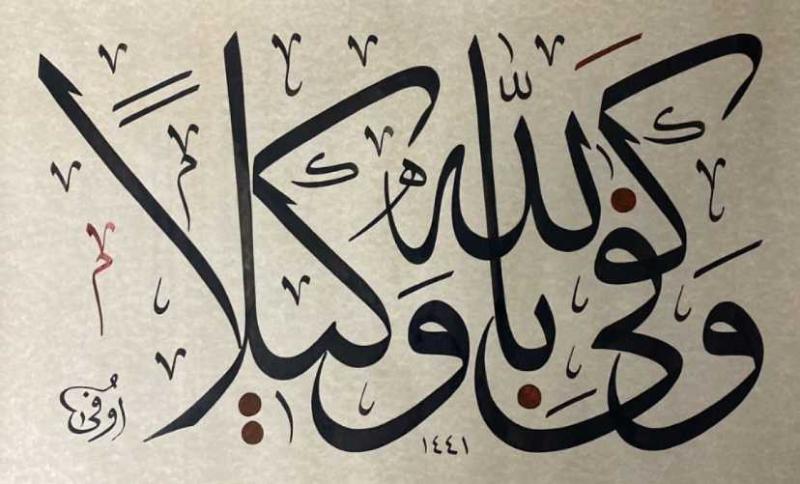 وَكَفَىٰ بِاللّٰهِ وَكِيلًا
١٤٤١